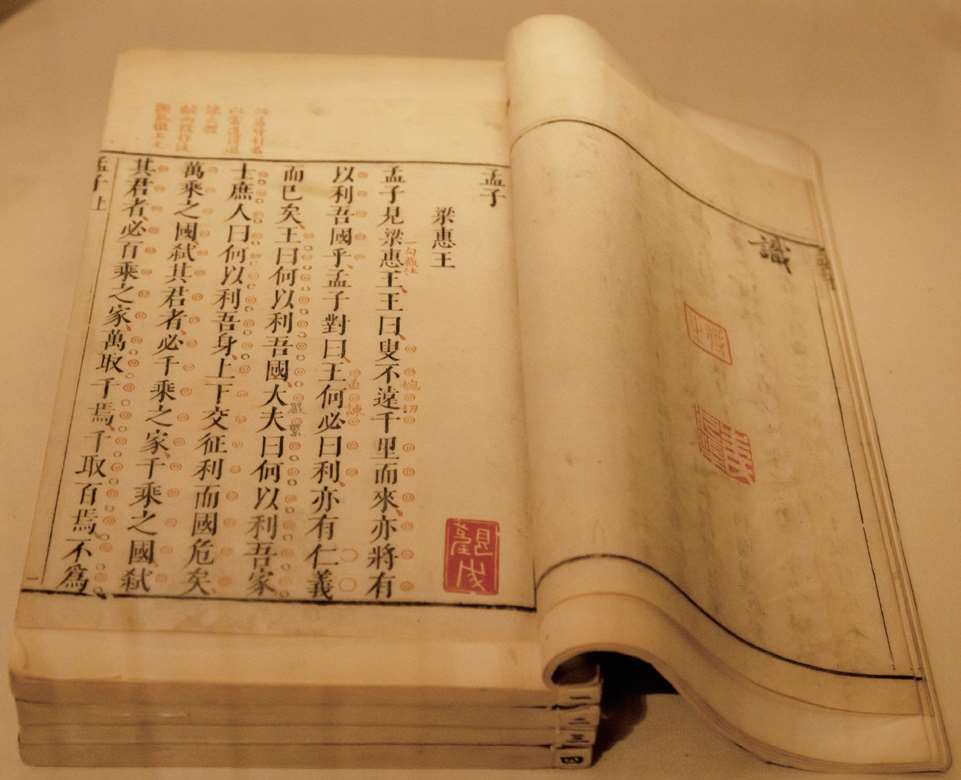 識
孟子
梁惠王
孟子見梁惠王王曰叟不遠千里而來亦將有
以利吾國乎孟子對曰王何必曰利亦有仁義
而已矣王曰何以利吾國大夫曰何以利吾家
士庶人曰何以利吾身上下交征利而國危矣
萬乘之國弒其君者必千乘之家千乘之國弒
其君者必百乘之家萬取千焉千取百焉不為
孟子上
一
二
三
四